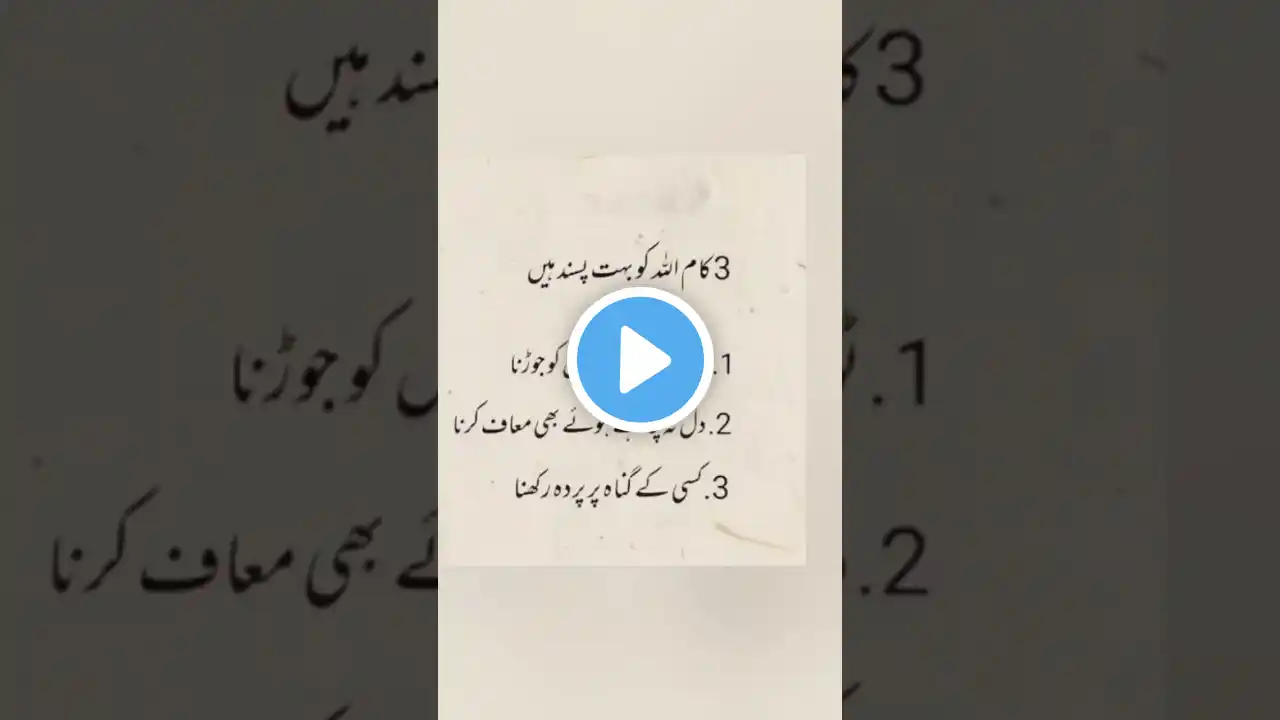 3 کام اللہ کو بہت پسند ہیں
1. کو جوڑنا
2. دل ہوئے بھی معاف کرنا
3. کسی کے گناہ پر پردہ رکھنا